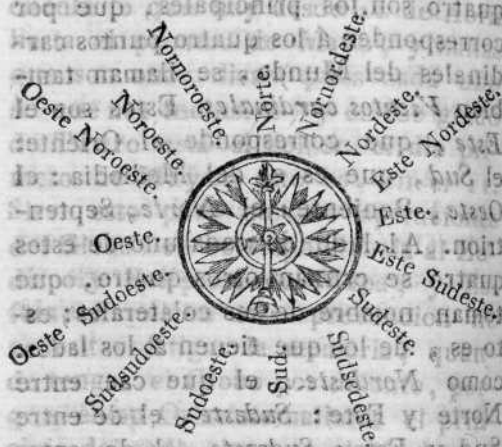 Norte.
Nornordeste.
Nordeste.
Este Nordeste.
Este.
Este Sudeste.
Sudeste.
Sudsedeste.
Sud.
Sudoeste.
Sudsudoeste.
Oeste Sudoeste.
Oeste.
Oeste Noroeste.
Noroeste.
Nornoroeste.